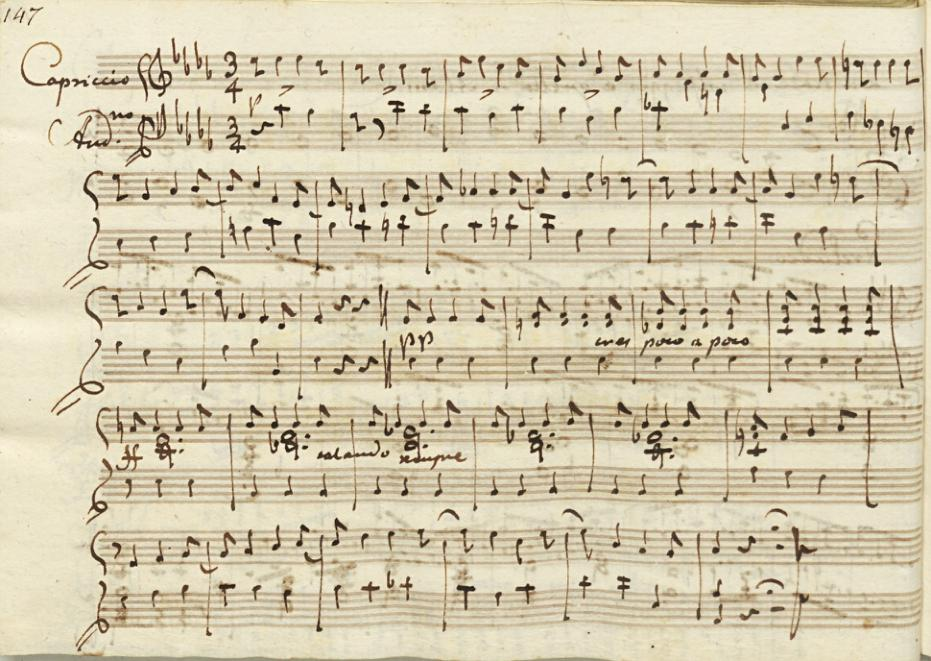 147
Capriccio
And.no
3/4
3/4
pp
cres poco a poco
ff calando sempre